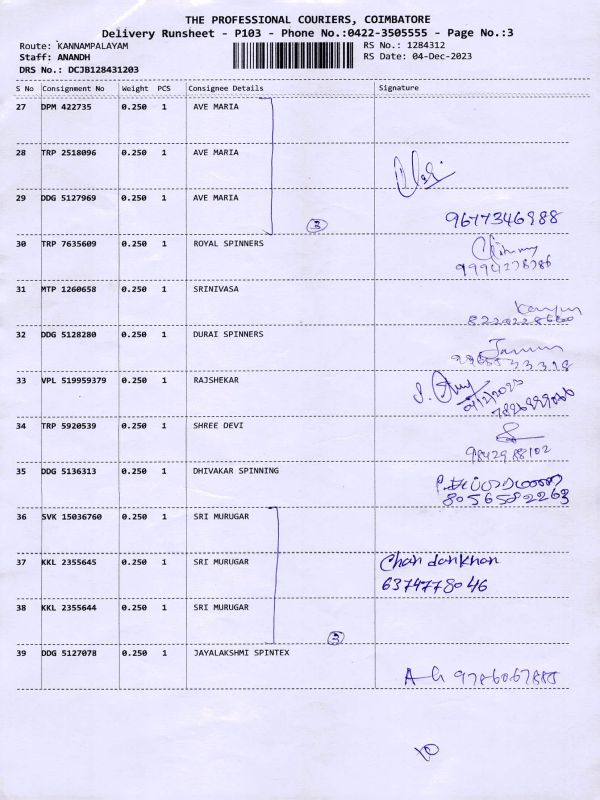 THE PROFESSIONAL COURIERS, COIMBATORE
Delivery Runsheet - P103 - Phone No.:0422-3505555 - Page No.:3
Route: KANNAMPALAYAM
RS No.: 1284312
Staff: ANANDH
RS Date: 04-Dec-2023
DRS No.: DCJB128431203
S No Consignment No Weight PCS Consignee Details Signature
27 DPM 422735 0.250 1 AVE MARIA
28 TRP 2518096 0.250 1 AVE MARIA
29 DDG 5127969 0.250 1 AVE MARIA
3 9677346988
30 TRP 7635609 0.250 1 ROYAL SPINNERS
9994278786
31 MTP 1260658 0.250 1 SRINIVASA
32 DDG 5128280 0.250 1 DURAI SPINNERS
33 VPL 519959379 0.250 1 RAJSHEKAR
34 TRP 5920539 0.250 1 SHREE DEVI
9842988102
35 DDG 5136313 0.250 1 DHIVAKAR SPINNING
8056582263
36 SVK 15036760 0.250 1 SRI MURUGAR
37 KKL 2355645 0.250 1 SRI MURUGAR Chandankhan
6374778046
38 KKL 2355644 0.250 1 SRI MURUGAR
3
39 DDG 5127078 0.250 1 JAYALAKSHMI SPINTEX
10